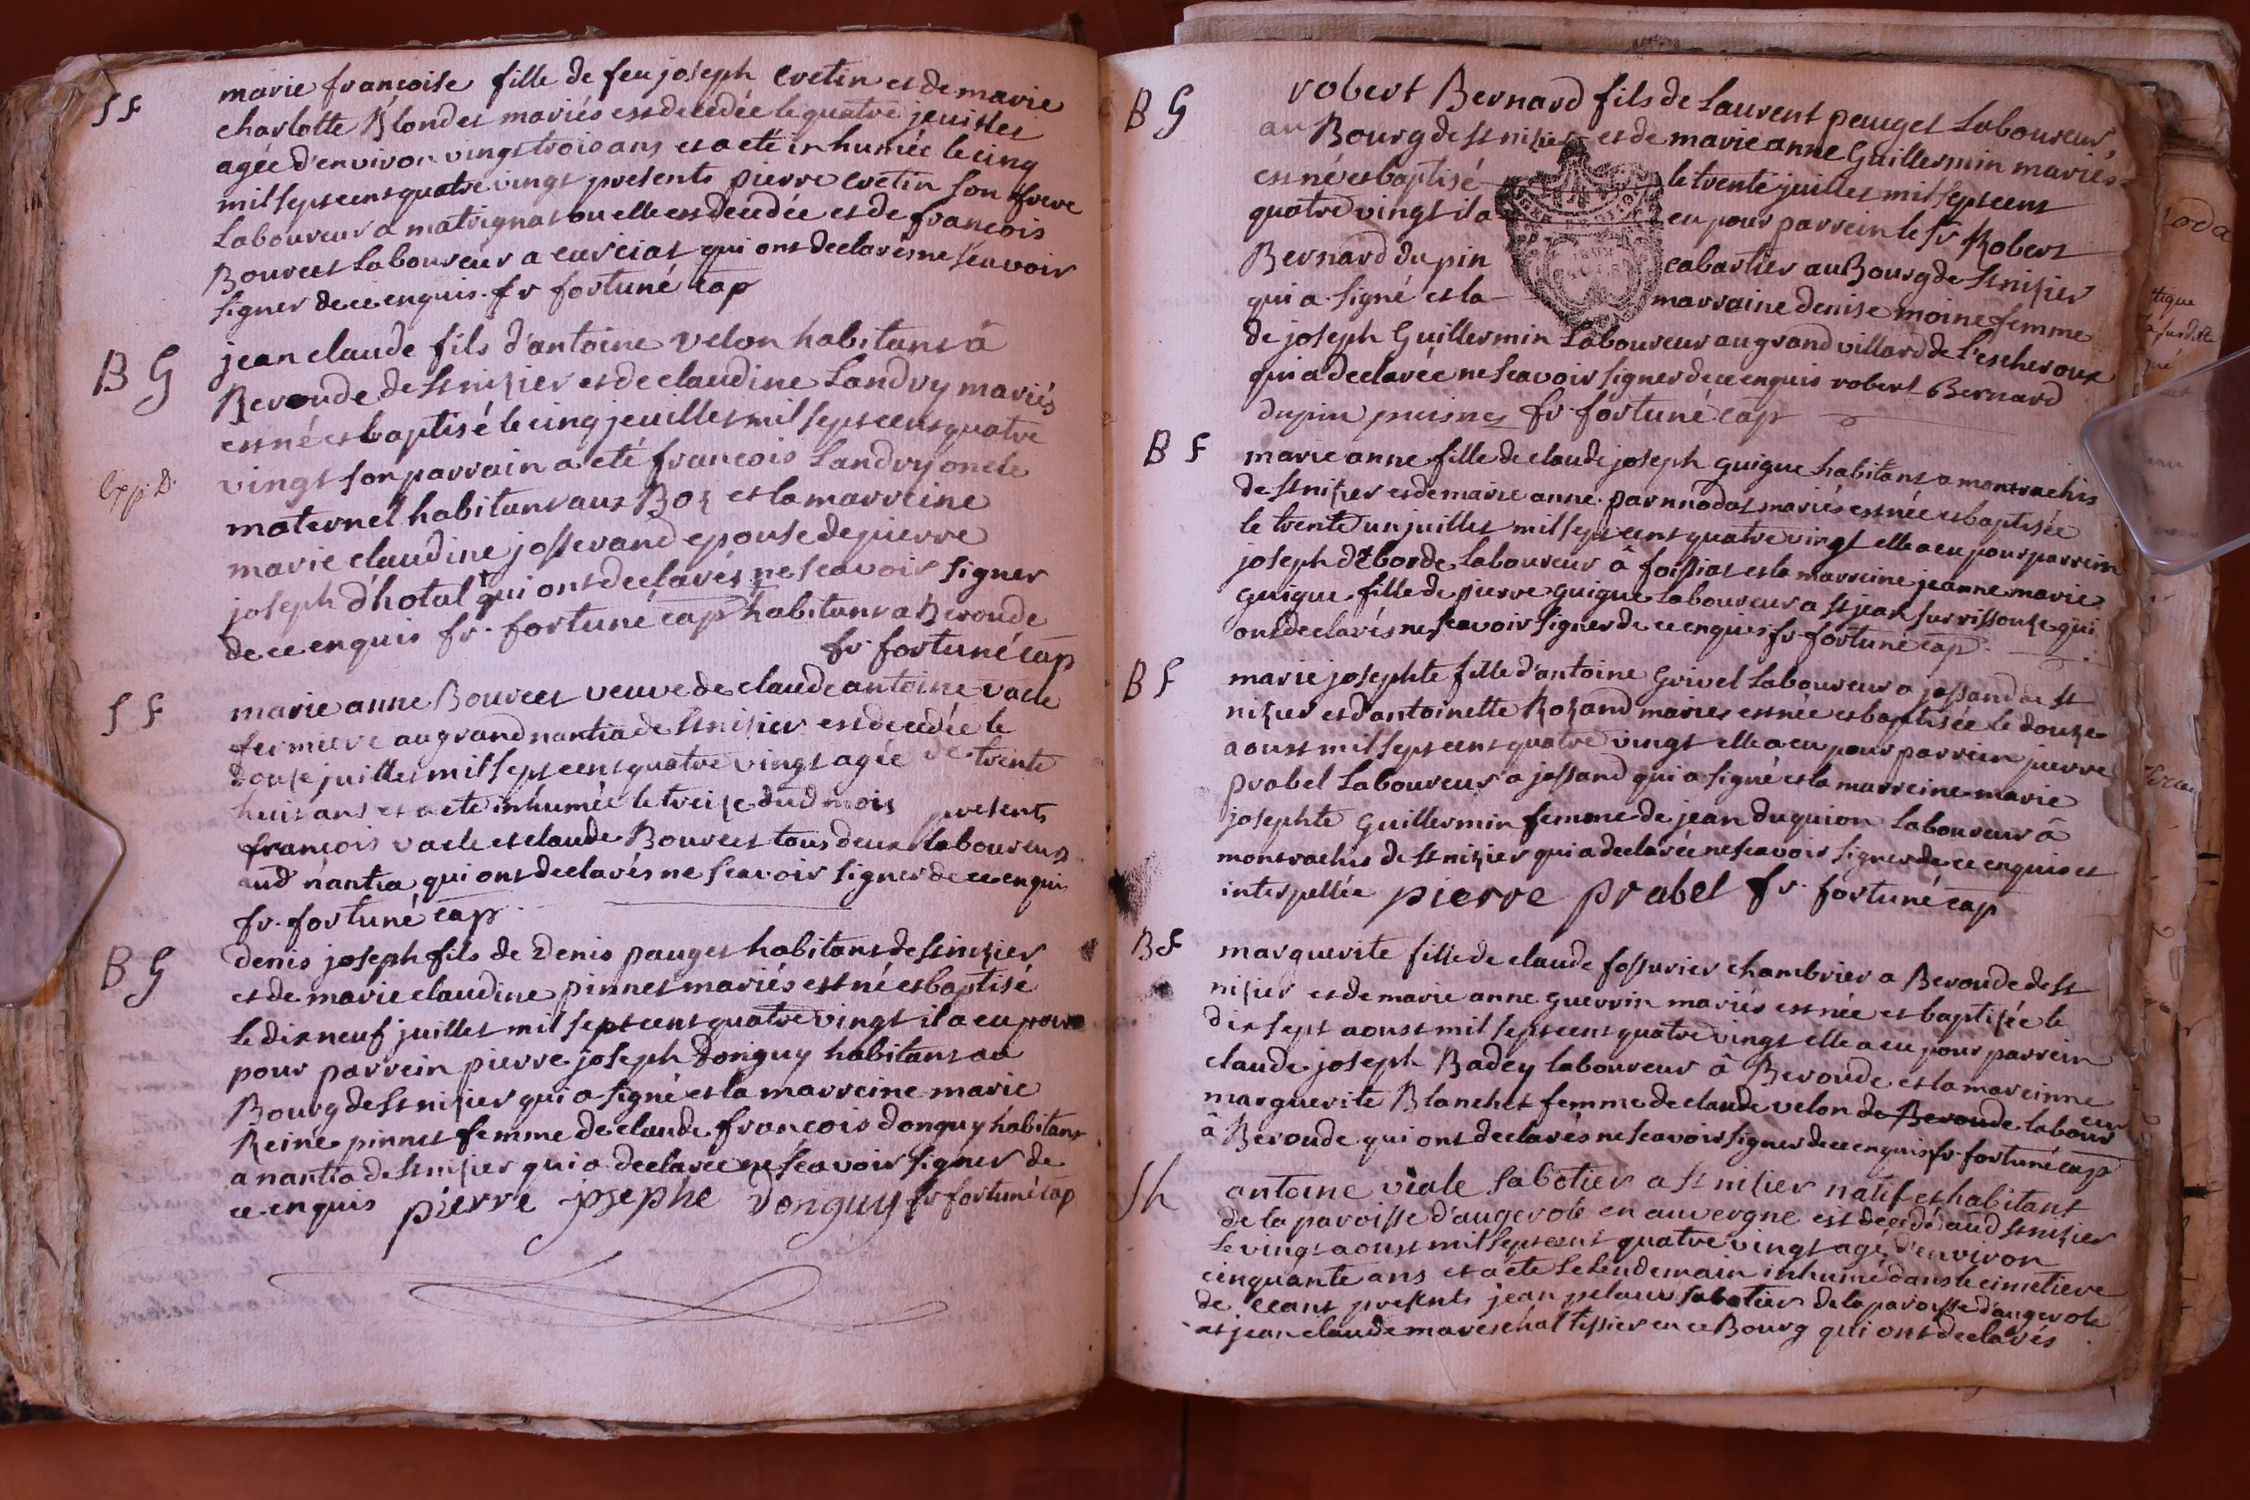 S F
marie françoise fille de feu joseph cretin et de marie
charlotte Blondet mariés est decedée le quatre jeuillet
agée d'environ vingt trois ans et a eté inhumée le cinq
mil sept cent quatre vingt presents pierre cretin son frere
Laboureur a matrignat ou elle est decedée et de francois
Bourcet Laboureur a curciat qui ont declarés ne scavoir
signer de ce enquis. fr fortuné cap
B G
jean claude fils d'antoine velon habitant â
Beroude de st nizier et de claudine Landry mariés
est né et baptisé le cinq jeuillet mil sept cent quatre
vingt son parrain a eté francois Landry oncle
Exp. D.
maternel habitant aux Boz et la marreine
marie claudine josserand epouse de pierre
joseph d'hotal qui ont declarés ne scavoir signer
de ce enquis fr. fortuné cap habitant a Beroude
fr. fortuné cap
S F
marie anne Bourcet veuve de claude antoine vacle
fermiere au grand nantia de st nizier est decedée le
douze juillet mil sept cent quatre vingt agée de trente
huit ans et a ete inhumée le treize dud mois presents
francois vacle et claude Bourcet tous deux laboureurs
aud nantia qui ont declarés ne scavoir signer de ce enquis
fr. fortuné cap.
B G
denis joseph fils de Denis pauget habitant de st nizier
et de marie claudine pinnet mariés est né et baptisé
le dix neuf juillet mil sept cent quatre vingt il a eu pour
pour parrein pierre joseph donguy habitant au
Bourg de st nizier qui a signé et la marreine marie
Reine pinnet femme de claude francois donguy habitant
a nantia de st nizier qui a declarée ne scavoir signer de
ce enquis pierre josephe donguy fr fortuné cap
B G
robert Bernard fils de Laurent pauget Laboureur
au Bourg de st nizier et de marie anne Guillermin mariés
est né et baptisé le trente juillet mil sept cent
quatre vingt il a eu pour parrein le sr Robert
Bernard dupin cabartier au Bourg de st nizier
qui a signé et la marraine denise moine femme
de joseph Guillermin Laboureur au grand villard de l'escheroux
qui a declarée ne scavoir signer de ce enquis robert Bernard
dupin puisnez fr. fortuné cap
B F
marie anne fille de claude joseph guigue habitant a montrachis
de st nizier et de marie anne parnnodat mariés est née et baptisée
le trente un juillet mil sept cent quatre vingt elle a eu pour parrein
joseph deborde laboureur â foissiat et la marreine jeanne marie
guigue fille de pierre guigue Laboureur a st jean sur rissouze qui
ont declarés ne scavoir signer de ce enquis fr. fortuné cap.
B F
marie josephte fille d'antoine Grivel Laboureur a jassand de st
nizier et d'antoinette Rozand mariés est née et baptisée le douze
aoust mil sept cent quatre vingt elle a eu pour parrein pierre
prabel Laboureur a jassand qui a signé et la marreine marie
josephte Guillermin femme de jean duguion Laboureur â
montrachis de st nizier qui a declarée ne scavoir signer de ce enquis et
interpellée pierre prabel fr. fortuné cap
B F
marguerite fille de claude fossurier chambrier a Beroude de st
nizier et de marie anne guerrin mariés est née et baptizée le
dix sept aoust mil sept cent quatre vingt elle a eu pour parrein
claude joseph Badey laboureur â Beroude et la mareinne
marguerite Blanchet femme de claude velon de Beroude laboureur
â Beroude qui ont declarés ne scavoir signer de ce enquis fr. fortuné cap
Sh
antoine viale sabotier a st nizier natif et habitant
de la paroisse d'augerole en auvergne est decedé aud st nizier
le vingt aoust mil sept cent quatre vingt agé d'environ
cinquante ans et a eté le lendemain inhumé dans le cimetiere
de ceans presents jean pelaux sabotier de la paroisse d'augerole
et jean claude mareschal tissier en ce Bourg qui ont declarés